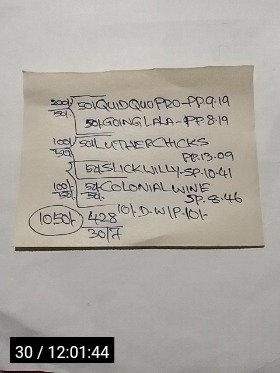 500/- 50/- QUID QUO PRO-PP.9.19
50/- 50/- GOING LALA-PP.8.19
100/- 50/- LUTHER CHICKS
PP.13.09
50/- SLICKWILLY-SP.10.41
100/- 50/- COLONIAL WINE
50/- 50/- SP.8.46
1050/- 428 10/-D.W/P.10/-
30/7
30 / 12:01:44